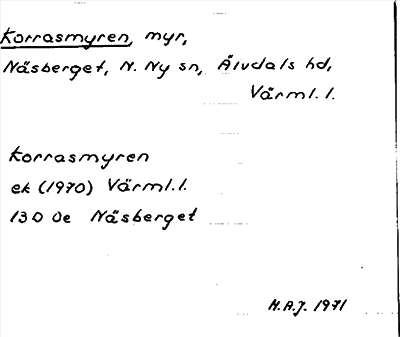 Korrasmyren, myr,
Näsberget, N. Ny sn, Älvdals hd,
Värml. l.
Korrasmyren
ek (1970) Värml. l.
130 0e Näsberget
H.A.J. 1971